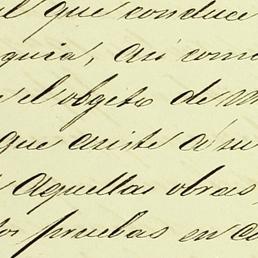 que conduce
quia, así como
el objeto de
que existe á
aquellas obras,
pruebas en